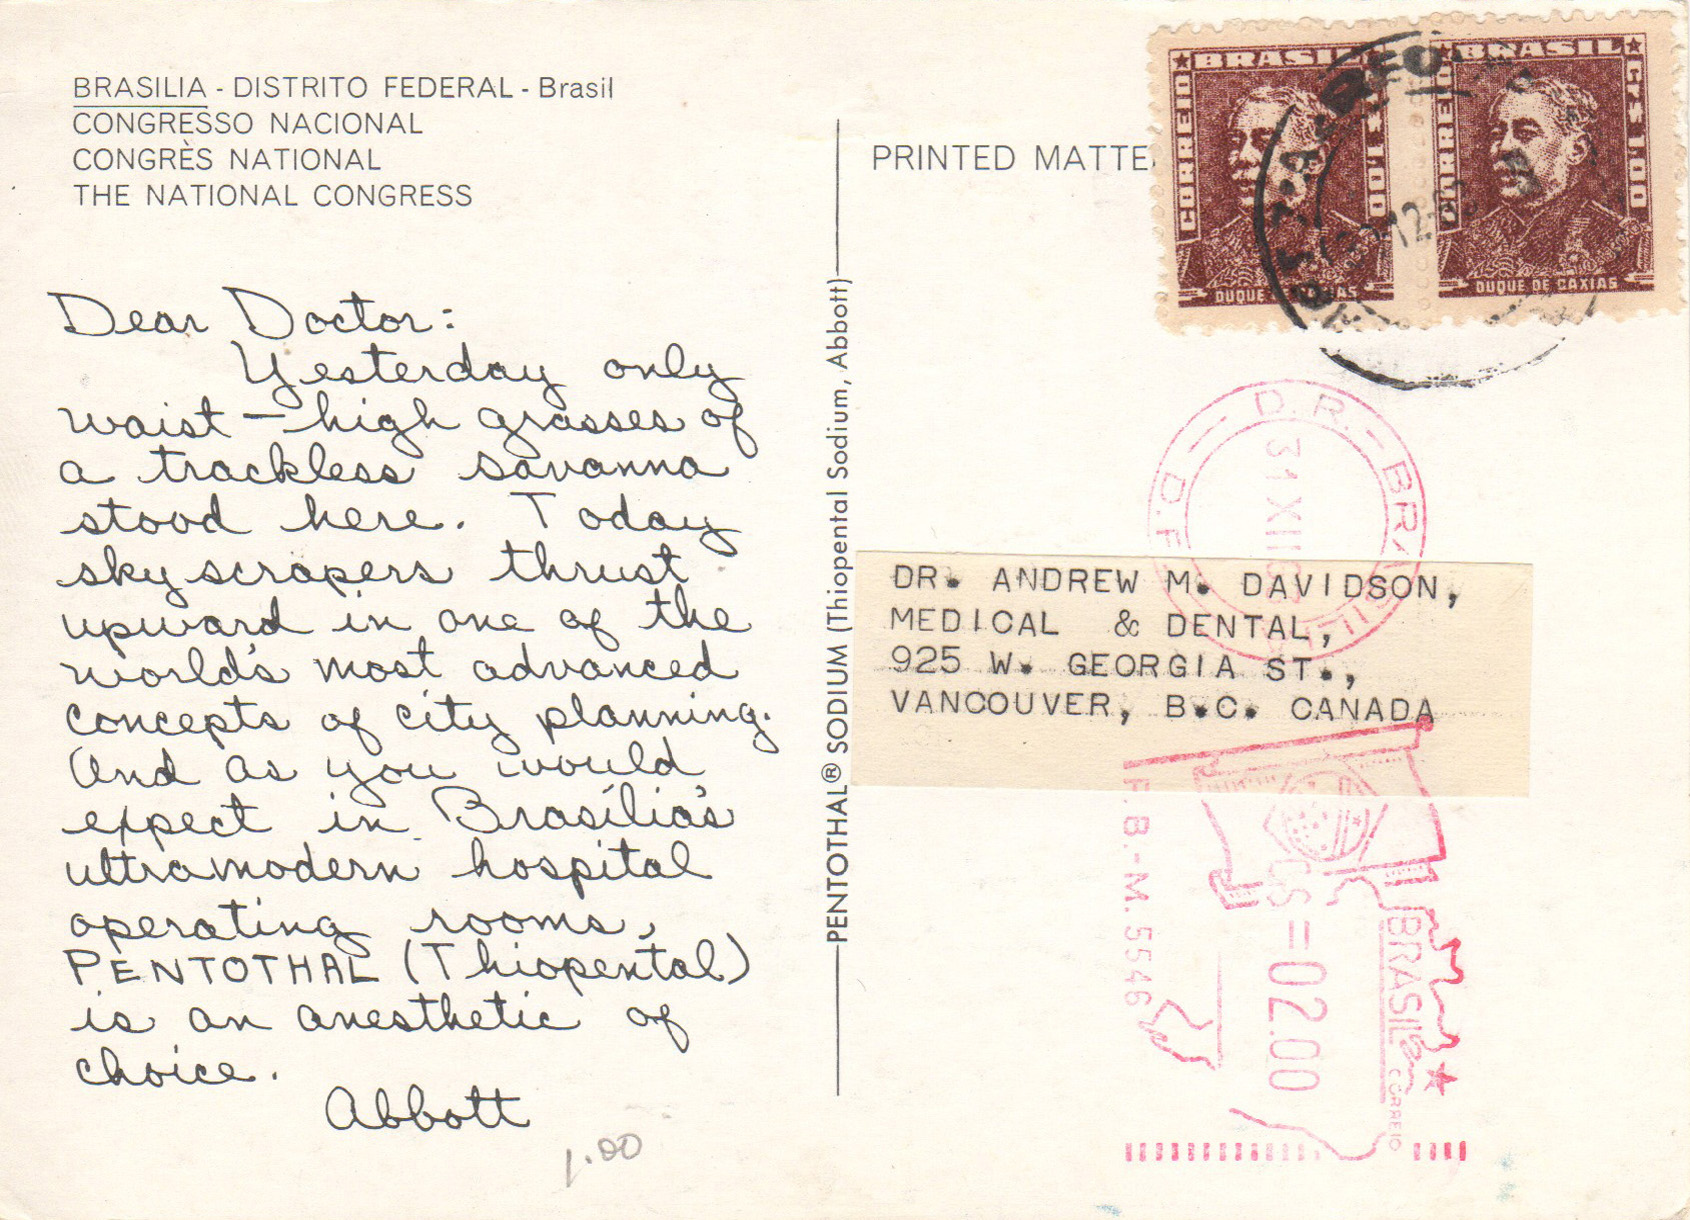 BRASILIA - DISTRITO FEDERAL - Brasil
CONGRESSO NACIONAL
CONGRÈS NATIONAL
THE NATIONAL CONGRESS
Dear Doctor:
Yesterday only
waist-high grasses of
a trackless savanna
stood here. Today
skyscrapers thrust
upward in one of the
world's most advanced
concepts of city planning.
And as you would
expect in Brasília's
ultramodern hospital
operating rooms,
PENTOTHAL (Thiopental)
is an anesthetic of
choice.
Abbott
1.00
PENTOTHAL® SODIUM (Thiopental Sodium, Abbott)
PRINTED MATTE
BRASIL
CORREIO
1,00
DUQUE DE CAXIAS
BRASIL
CORREIO
CR$ 1,00
DUQUE DE CAXIAS
D.R. - BRASILIA - D.F.
31 XII
DR. ANDREW M. DAVIDSON,
MEDICAL & DENTAL,
925 W. GEORGIA ST.,
VANCOUVER, B.C. CANADA
P.B.-M.5546
=02.00
BRASIL
CORREIO